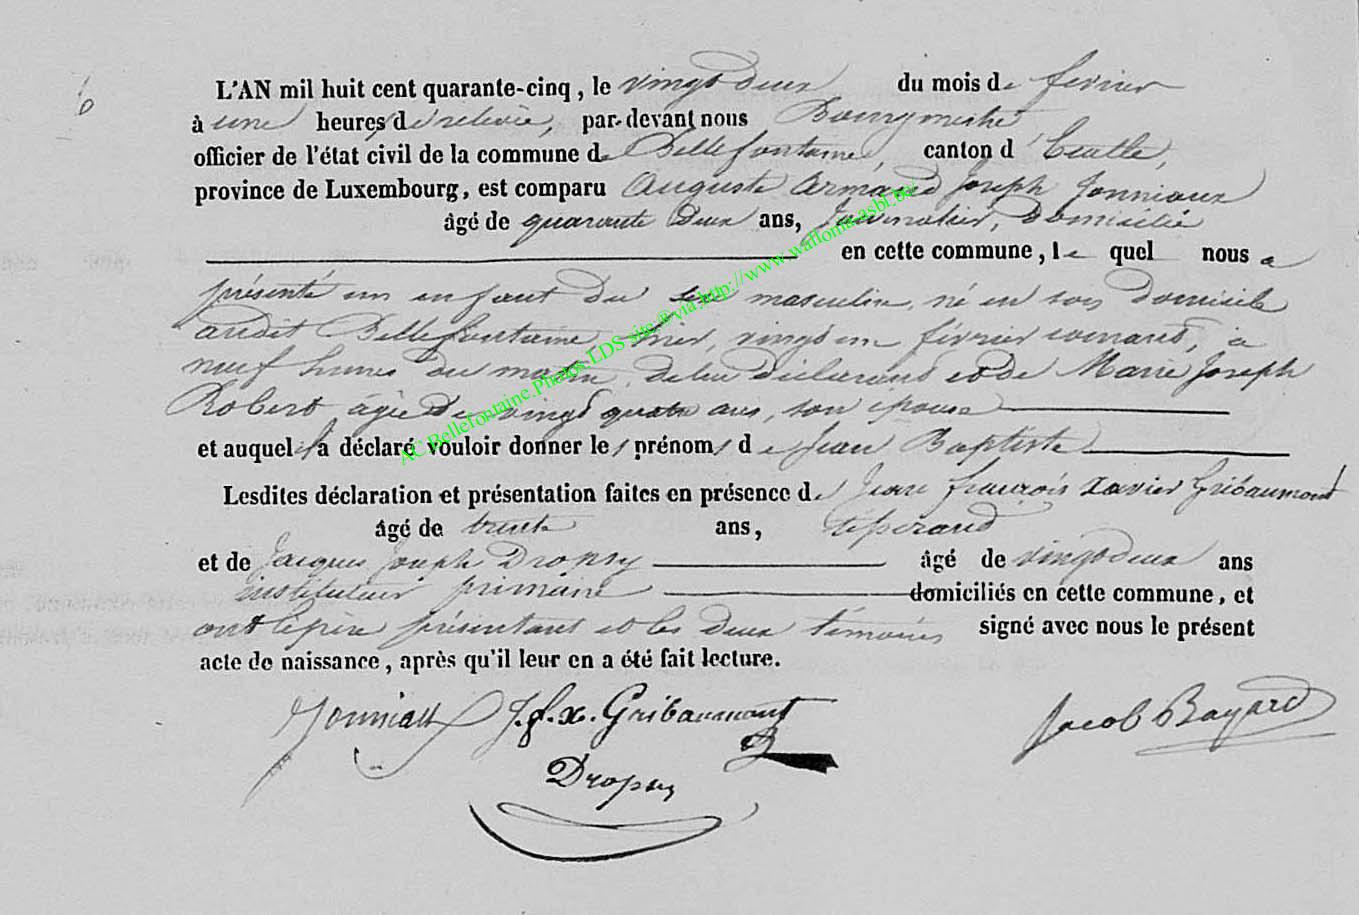 6
L'AN mil huit cent quarante-cinq, le vingt deux du mois de février
à une heures de relevée, par-devant nous Bourgmestre
officier de l'état civil de la commune de Bellefontaine, canton d'Etalle,
province de Luxembourg, est comparu Auguste Armand Joseph Jonniaux
âgé de quarante deux ans, journalier, domicilié
en cette commune, le quel nous a
présenté un enfant du sexe masculin, né en son domicile
audit Bellefontaine, hier, vingt un février courant, à
neuf heures du matin, de lui déclarant et de Marie Joseph
Robert âgée de vingt quatre ans, son épouse
et auquel il a déclaré vouloir donner les prénoms de Jean Baptiste
Lesdites déclaration et présentation faites en présence de Jean françois Xavier Gribaumont
âgé de trente ans, tisserand
et de Jacques Joseph Dropsy âgé de vingt deux ans
instituteur primaire domiciliés en cette commune, et
ont le père présentant et les deux témoins signé avec nous le présent
acte de naissance, après qu'il leur en a été fait lecture.
Jonniaux J. f. x. Gribaumont Jacob Bayard
Dropsy
AC Bellefontaine.Photos LDS site @via http://www.wallonia-asbl.be/